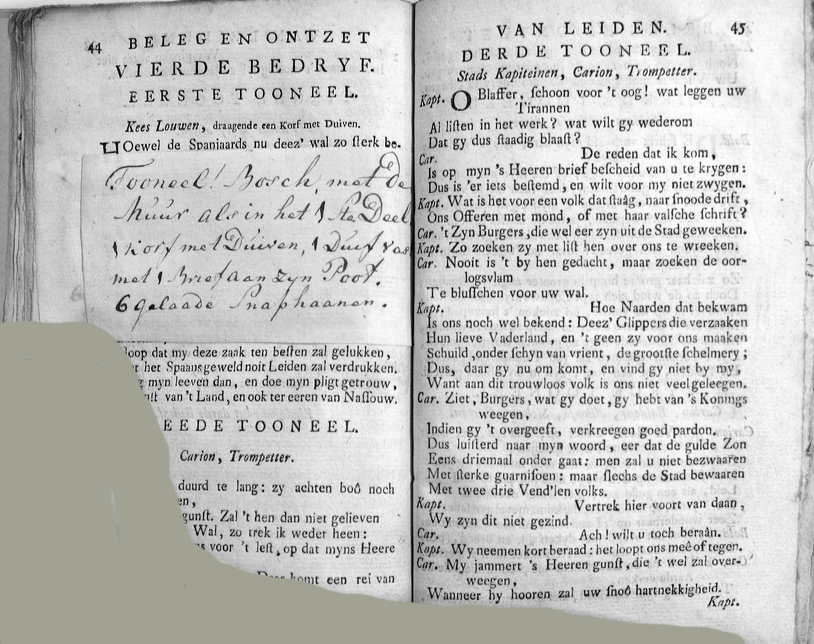 44 BELEG EN ONTZET
VIERDE BEDRYF.
EERSTE TOONEEL.
Kees Louwen, draagende een Korf met Duiven.
HOewel de Spanjaards nu deez' wal zo sterk be.
Tooneel! Bosch, met de
Muur als in het 1ste Deel
1 Korf met Duiven, 1 Duif vas
met 1 Brief aan zyn Poot.
6 gelaade Snaphaanen.
loop dat my deze zaak ten besten zal gelukken,
t het Spaans geweld noit Leiden zal verdrukken.
myn leeven dan, en doe myn pligt getrouw,
nst van 't Land, en ook ter eeren van Nassouw.
EEDE TOONEEL.
Carion, Trompetter.
duurd te lang: zy achten boô noch
en,
gunst. Zal 't hen dan niet gelieven
Wal, zo trek ik weder heen:
s voor 't lest, op dat myns Heere
komt een rei van
VAN LEIDEN. 45
DERDE TOONEEL.
Stads Kapiteinen, Carion, Trompetter.
Kapt. O Blaffer, schoon voor 't oog! wat leggen uw
Tirannen
Al listen in het werk? wat wilt gy wederom
Dat gy dus staadig blaast?
Car. De reden dat ik kom,
Is op myn 's Heeren brief bescheid van u te krygen:
Dus is 'er iets bestemd, en wilt voor my niet zwygen.
Kapt. Wat is het voor een volk dat staâg, naar snoode drift,
Ons Offeren met mond, of met haar valsche schrift?
Car. 't Zyn Burgers, die wel eer zyn uit de Stad geweeken.
Kapt. Zo zoeken zy met list hen over ons te wreeken.
Car. Nooit is 't by hen gedacht, maar zoeken de oor-
logsvlam
Te blusschen voor uw wal.
Kapt. Hoe Naarden dat bekwam
Is ons noch wel bekend: Deez' Glippers die verzaaken
Hun lieve Vaderland, en 't geen zy voor ons maaken
Schuild, onder schyn van vrient, de grootste schelmery;
Dus, daar gy nu om komt, en vind gy niet by my,
Want aan dit trouwloos volk is ons niet veel geleegen.
Car. Ziet, Burgers, wat gy doet, gy hebt van 's Konings
weegen,
Indien gy 't overgeeft, verkreegen goed pardon.
Dus luisterd naar myn woord, eer dat de gulde Zon
Eens driemaal onder gaat: men zal u niet bezwaaren
Met sterke guarnisoen: maar slechs de Stad bewaaren
Met twee drie Vend'len volks.
Kapt. Vertrek hier voort van daan,
Wy zyn dit niet gezind.
Car. Ach! wilt u toch beraân.
Kapt. Wy neemen kort beraad: het loopt ons meê of tegen.
Car. My jammert 's Heeren gunst, die 't wel zal over-
weegen,
Wanneer hy hooren zal uw snoô hartnekkigheid.
Kapt.